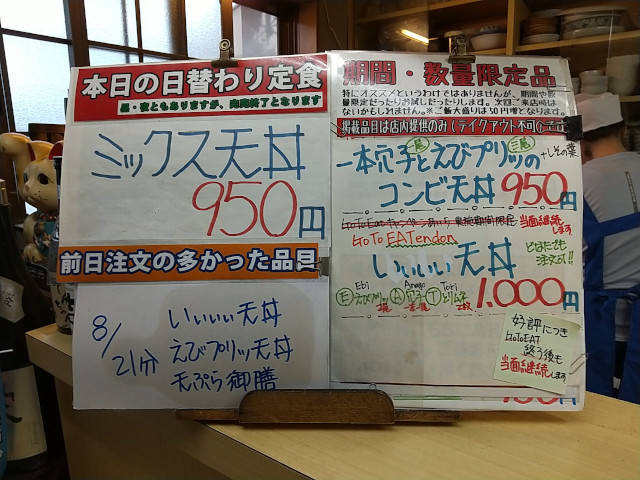 本日の日替わり定食
昼・夜ともありますが、売切終了となります
ミックス天丼
950円
前日注文の多かった品目
8/21分
いいぃぃ天丼
えびプリッ天丼
天ぷら御膳
期間・数量限定品
特にオススメというわけではありませんが、期間や数
量限定だったりお試しだったりします。次回ご来店時は
ないかもしれません。※ご飯大盛りは50円増となります。
掲載品目は店内提供のみ(テイクアウト不可)
一本穴子とえびプリッの
一尾
三尾
+しその葉
コンビ天丼 950円
当面継続
します
GoTo EATendon
どなたでも
注文可!!
いいぃぃ天丼
Ebi
Anago
Tori
Ⓔえびプリッ Ⓐ穴子 Ⓣとりムネ
1.000円
好評につき
GoToEAT
終了後も
当面継続します